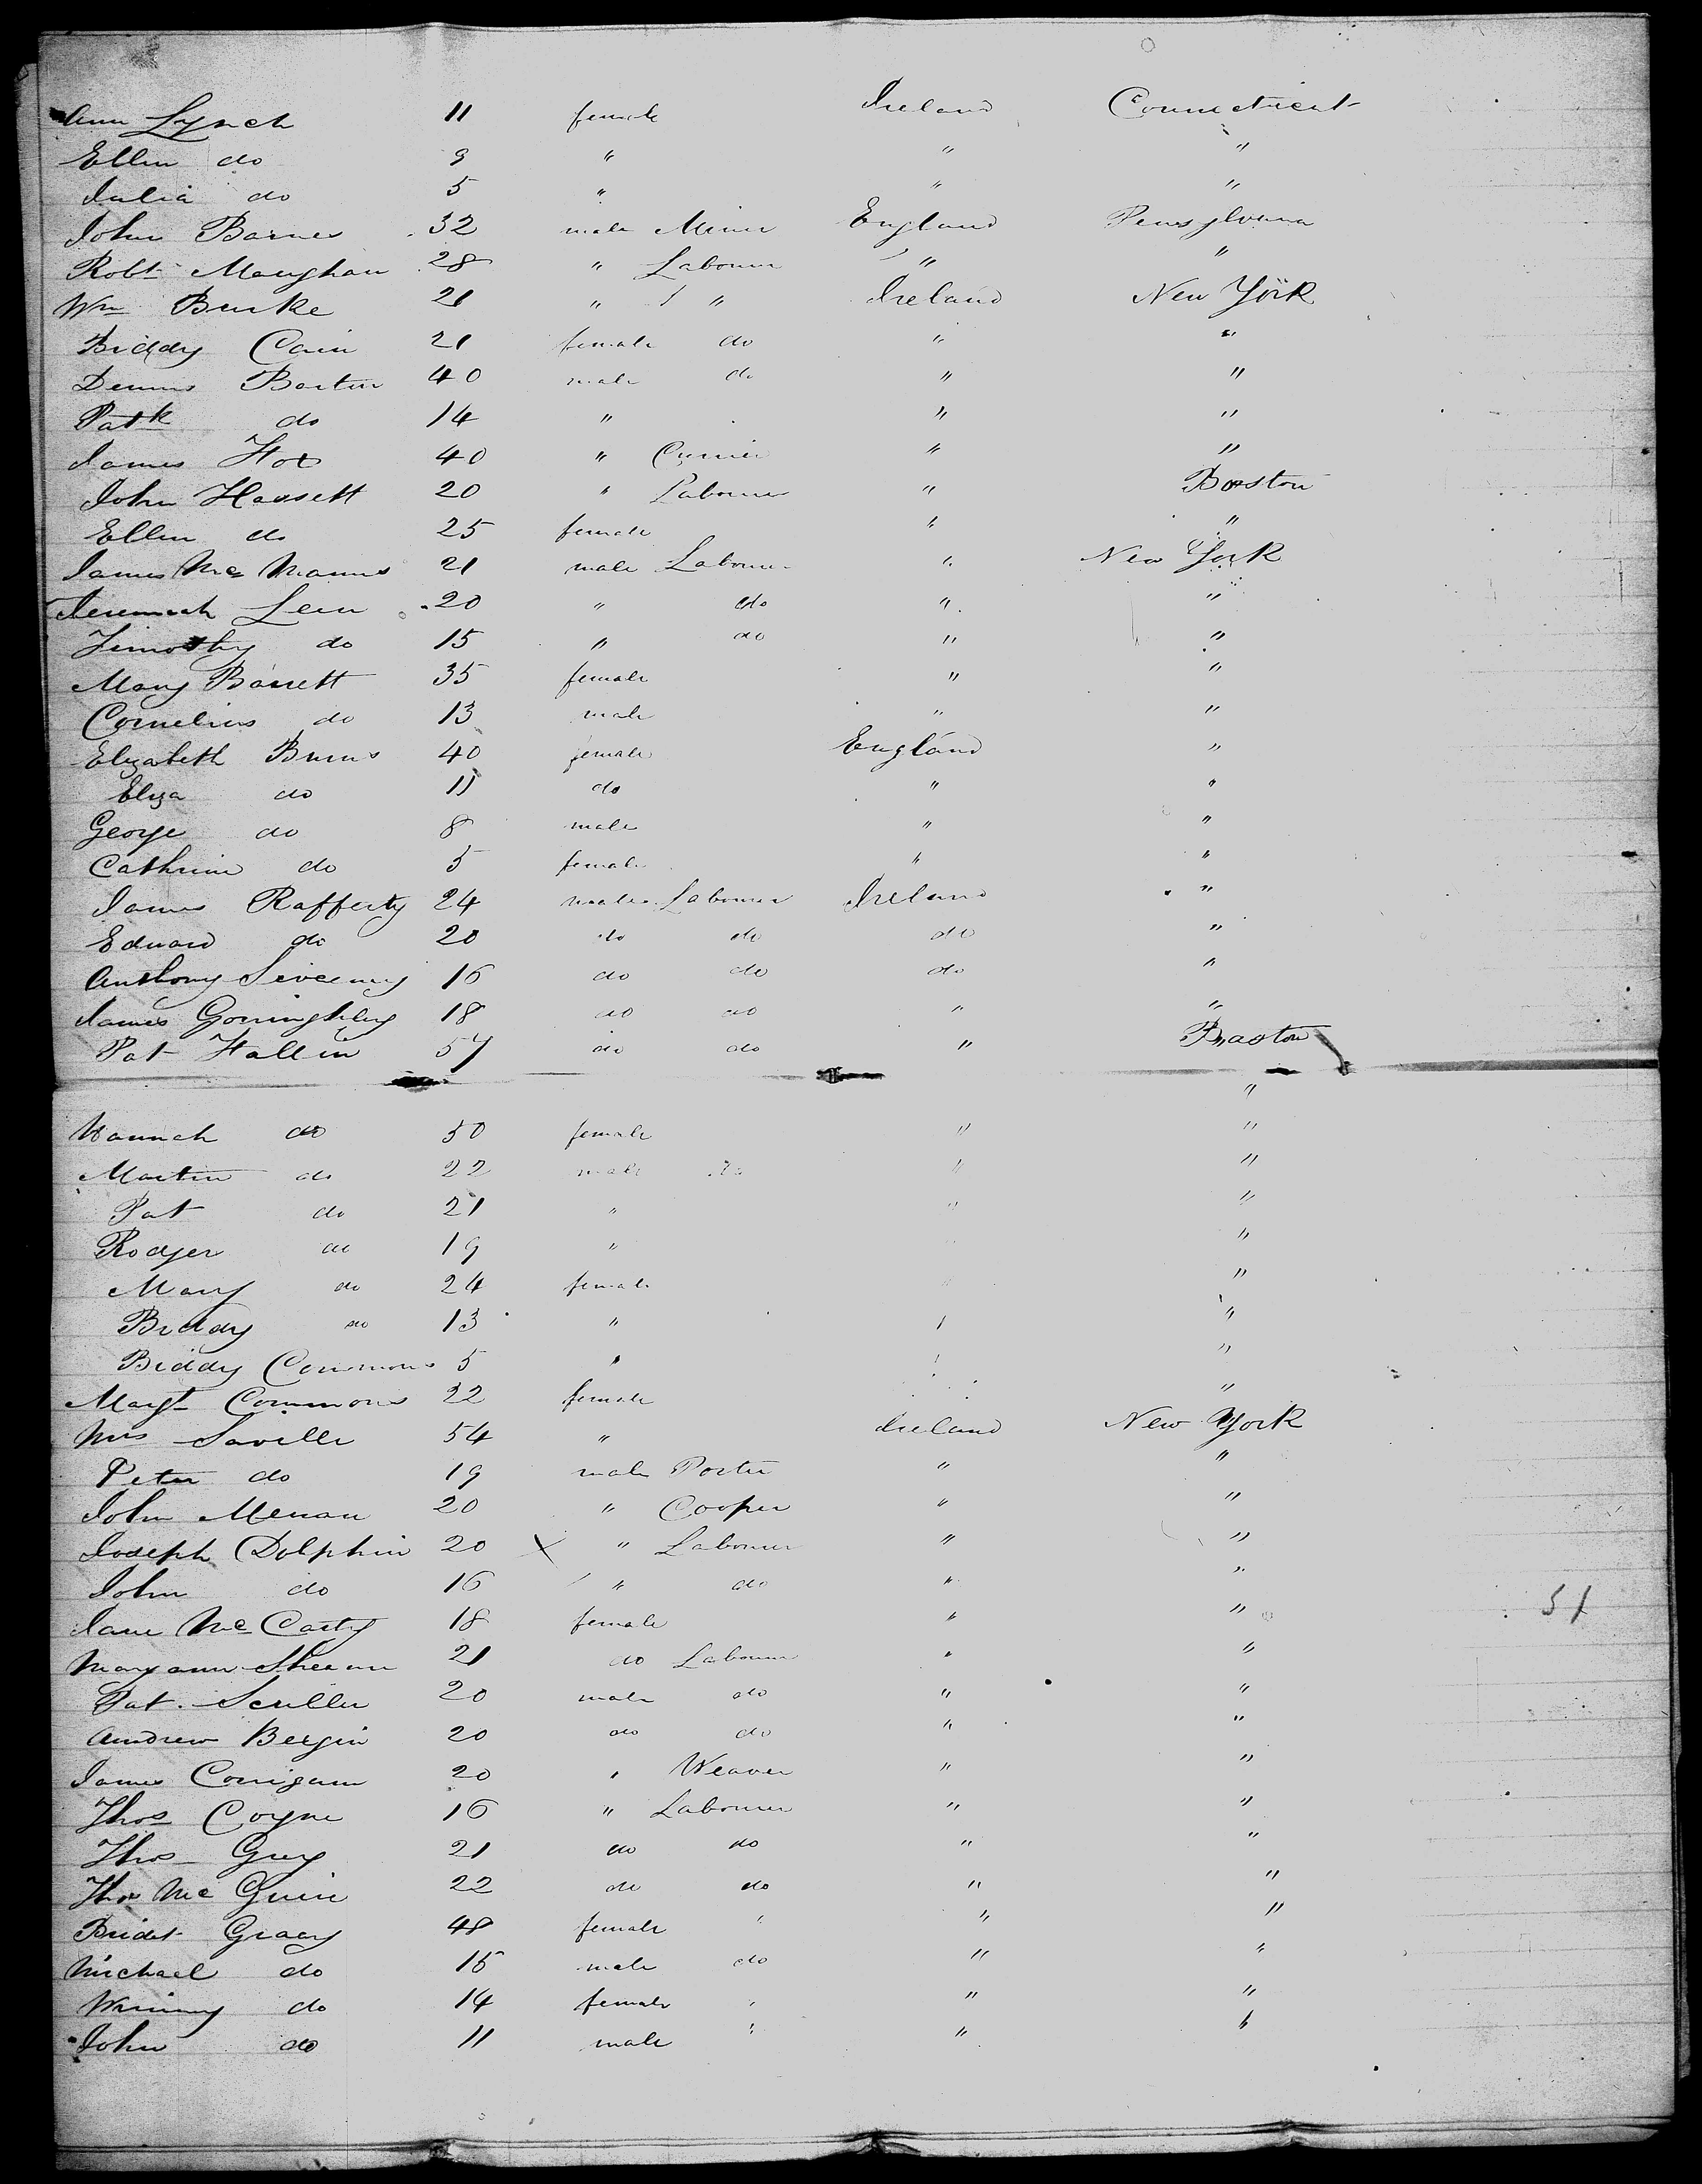 Ann Lynch 11 female Ireland Connecticut
Ellen do 9 " " "
Julia do 5 " " "
John Barnes 32 male Miner England Pensylvana
Robt Maughan 28 " Labourer " "
Wm Burke 21 " " Ireland New York
Biddy Cain 21 female do " "
Dennis Bartin 40 male do " "
Patk do 14 " " "
James Fox 40 " Currier " "
John Hassett 20 " Labourer " Boston
Ellen do 25 female " "
James Mc Manus 21 male Labourer " New York
Jeremiah Leen 20 " do " "
Timothy do 15 " do " "
Mary Barrett 35 female " "
Cornelius do 13 male " "
Elizabeth Burns 40 female England "
Eliza do 11 do " "
George do 8 male " "
Cathrine do 5 female " "
James Rafferty 24 male Labourer Ireland "
Edward do 20 do do do "
Anthony Sweeny 16 do do do "
James 18 do do " "
Pat Hallin 57 do do " Boston
"
Hannah do 50 female " "
Martin do 22 male do " "
Pat do 21 " " "
Rodger do 19 " "
Mary do 24 female "
Biddy do 13 " "
Biddy Commons 5 " "
Margt Commons 22 female "
Mrs Saville 54 " Ireland New York
Peter do 19 male Porter " "
John Menan 20 " Cooper " "
Joseph Dolphin 20 X " Labourer " "
John do 16 " do " "
Jane Mc Carty 18 female " " 51
Maryann Sheean 21 do Labourer " "
Pat Scullen 20 male do " "
Andrew Bergin 20 do do " "
James Corrigann 20 " Weaver " "
Thos Coyne 16 " Labourer " "
Thos Grey 21 do do " "
Thos Mc Guin 22 do do " "
Bridet Gracy 48 female " " "
Michael do 15 male do " "
Winny do 14 female " " "
John do 11 male " " "